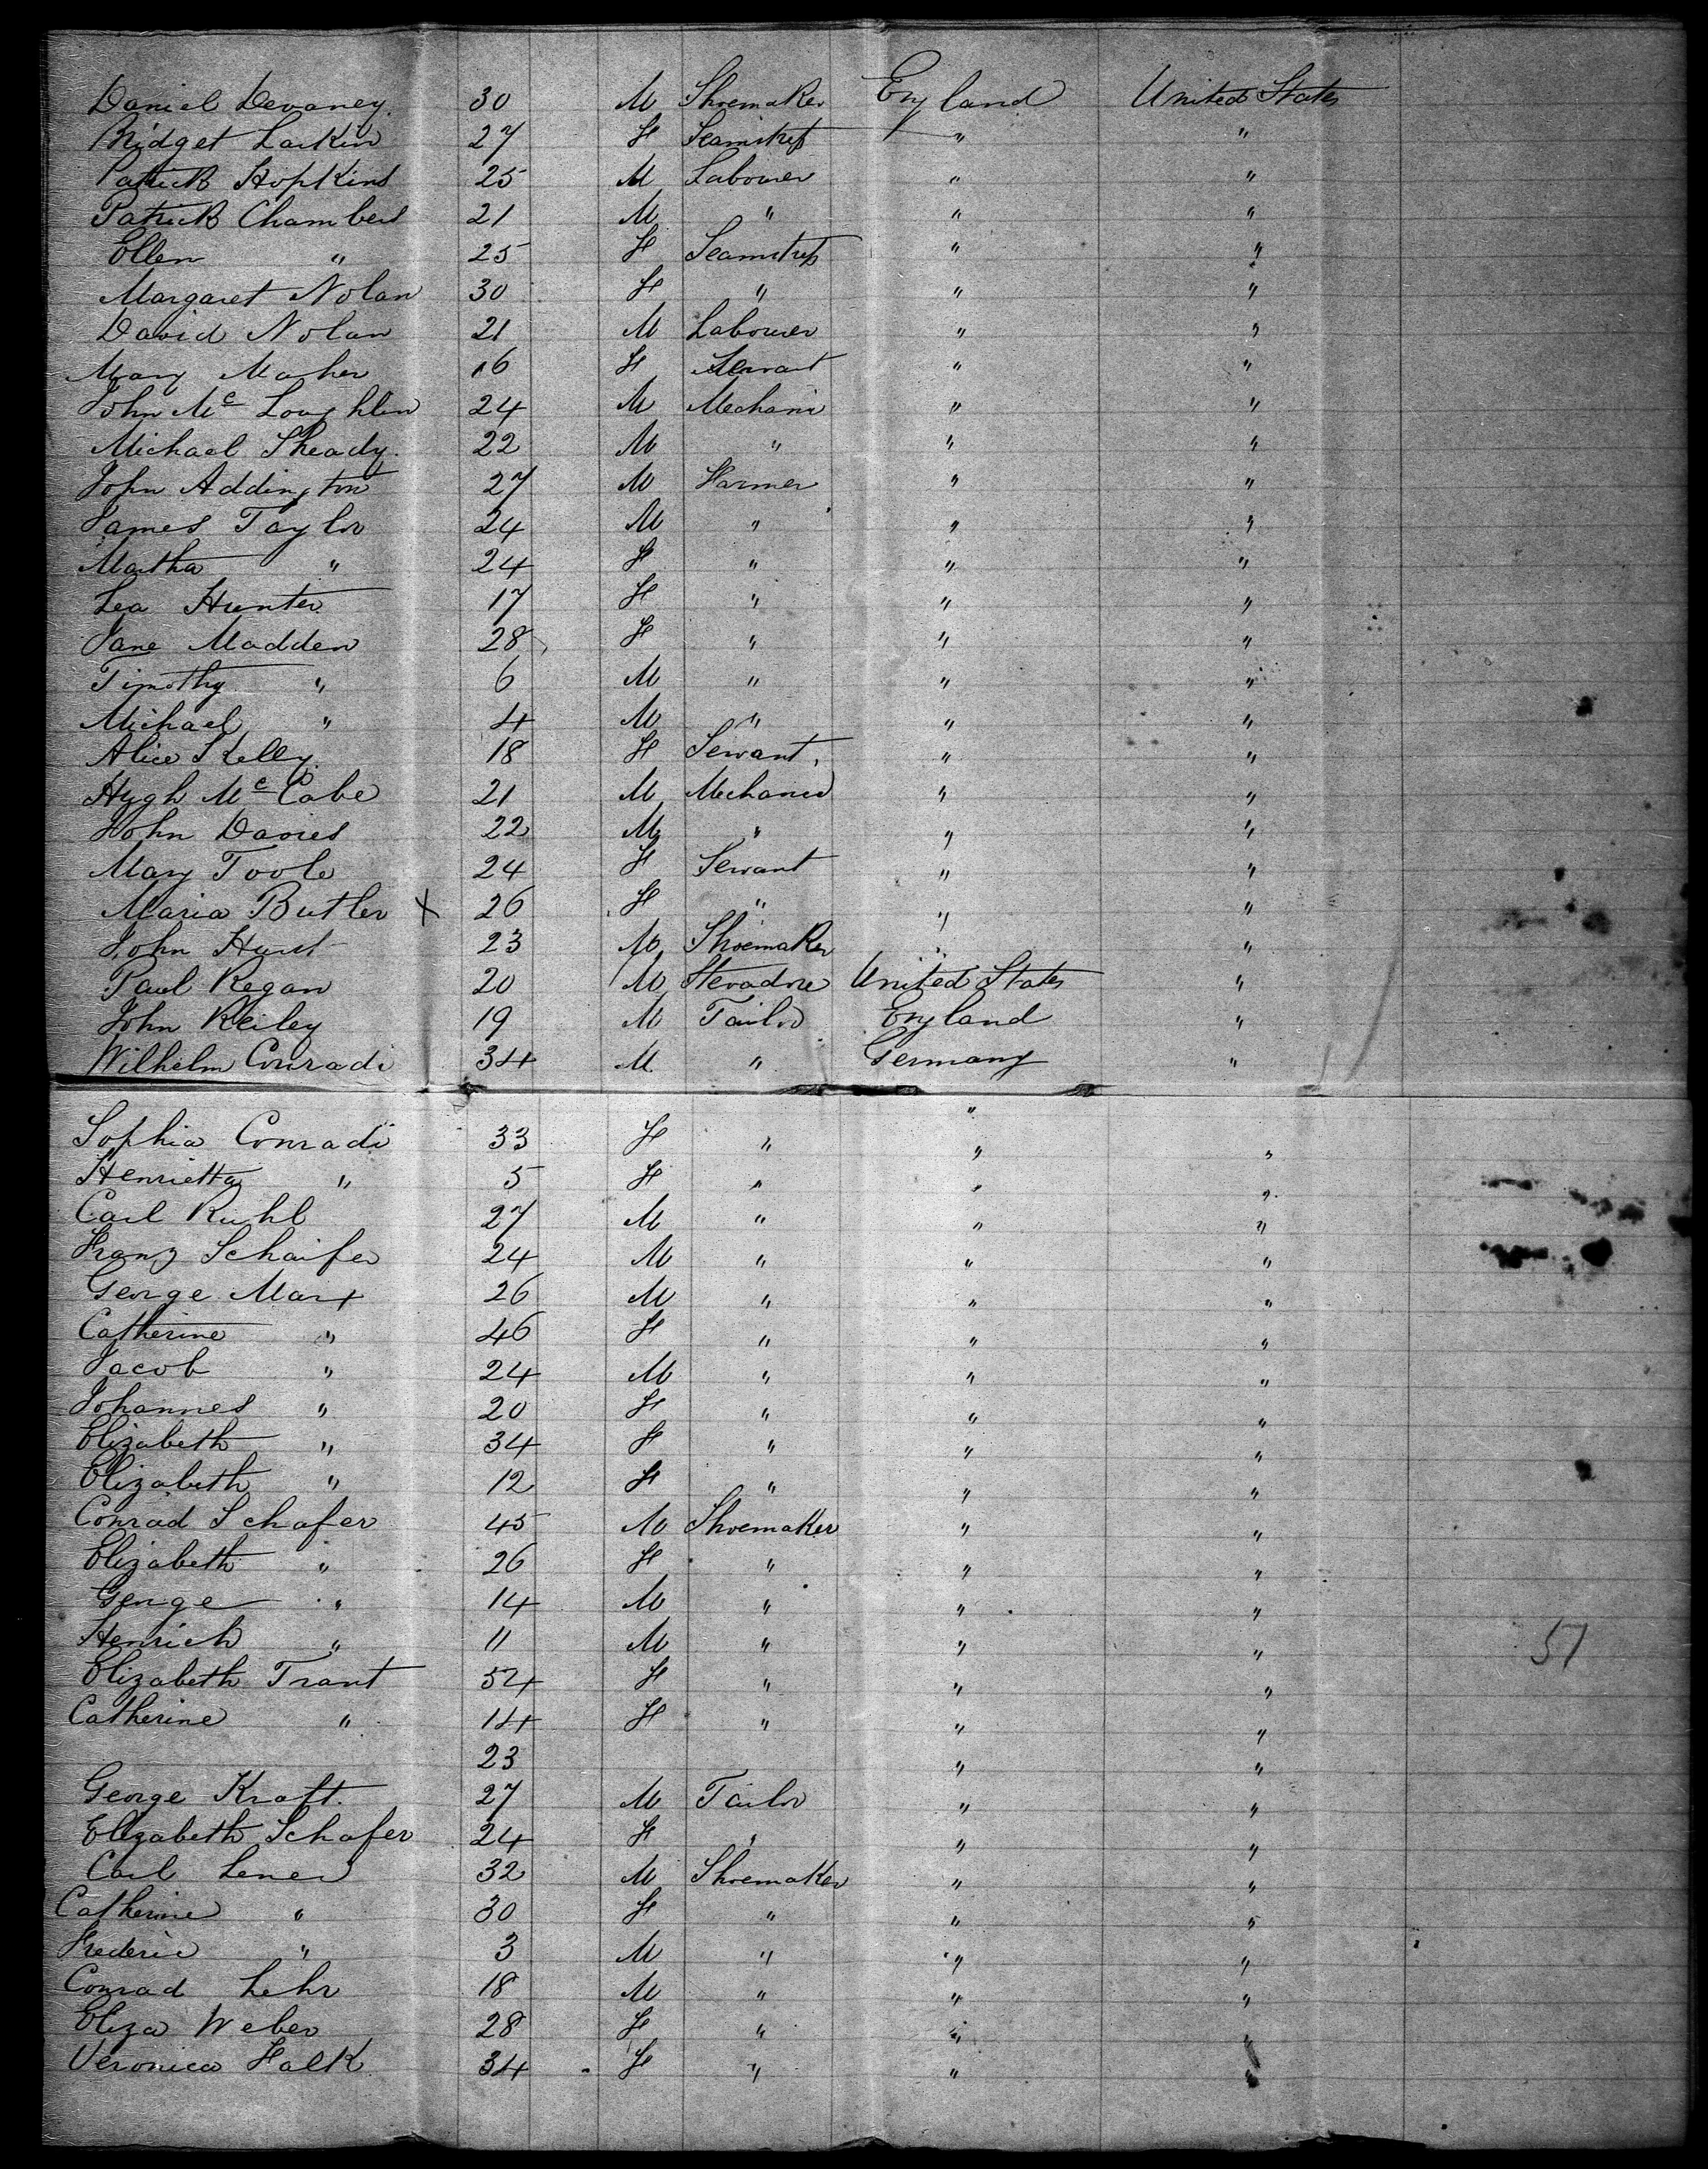 Daniel Devaney. 30 M Shoemaker England United States
Bridget Larkin 27 F Seamstress " "
Patrick Hopkins 25 M Labourer " "
Patrick Chambers 21 M " " "
Ellen " 25 F Seamstress " "
Margaret Nolan 30 F " " "
David Nolan 21 M Labourer " "
Mary Maher 16 F Servant " "
John Mc Loughlin 24 M Mechanic " "
Michael Sheady. 22 M " " "
John Addington 27 M Farmer " "
James Taylor 24 M " " "
Martha " 24 F " " "
Lea Hunter 17 F " " "
Jane Madden 28 F " " "
Timothy " 6 M " " "
Michael " 4 M " " "
Alice Kelly. 18 F Servant " "
Hugh Mc Cabe 21 M Mechanic " "
John Davies 22 M " " "
Mary Toole 24 F Servant " "
Maria Butler X 26 F " " "
John Hurst 23 M Shoemaker " "
Paul Regan 20 M Stevadore United States "
John Reiley 19 M Tailor England "
Wilhelm Conradi 34 M " Germany "
"
Sophia Conradi 33 F " " "
Henrietta " 5 F " " "
Carl Ruhl 27 M " " "
Franz Schaifer 24 M " " "
George Marx 26 M " " "
Catherine " 46 F " " "
Jacob " 24 M " " "
Johannes " 20 F " " "
Elizabeth " 34 F " " "
Elizabeth " 12 F " " "
Conrad Schafer 45 M Shoemaker " "
Elizabeth " 26 F " " "
George " 14 M " " "
Henrich " 11 M " " " 57
Elizabeth Trant 54 F " " "
Catherine " 14 F " " "
23 " "
George Kraft. 27 M Tailor " "
Elizabeth Schafer 24 F " " "
Carl Lener 32 M Shoemaker " "
Catherine " 30 F " " "
Frederic " 3 M " " "
Conrad Lehr 18 M " " "
Eliza Weber 28 F " " "
Veronica Falk 34 F " " "